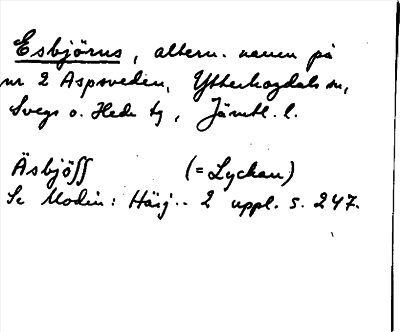 Esbjörns, altern. namn på
nr 2 Aspsveden, Ytterhogdals sn,
Svegs o. Hede tg, Jämtl. l.
Äsbjöss (= Lyckan)
Se Modin: Härj.. 2 uppl. s. 247.